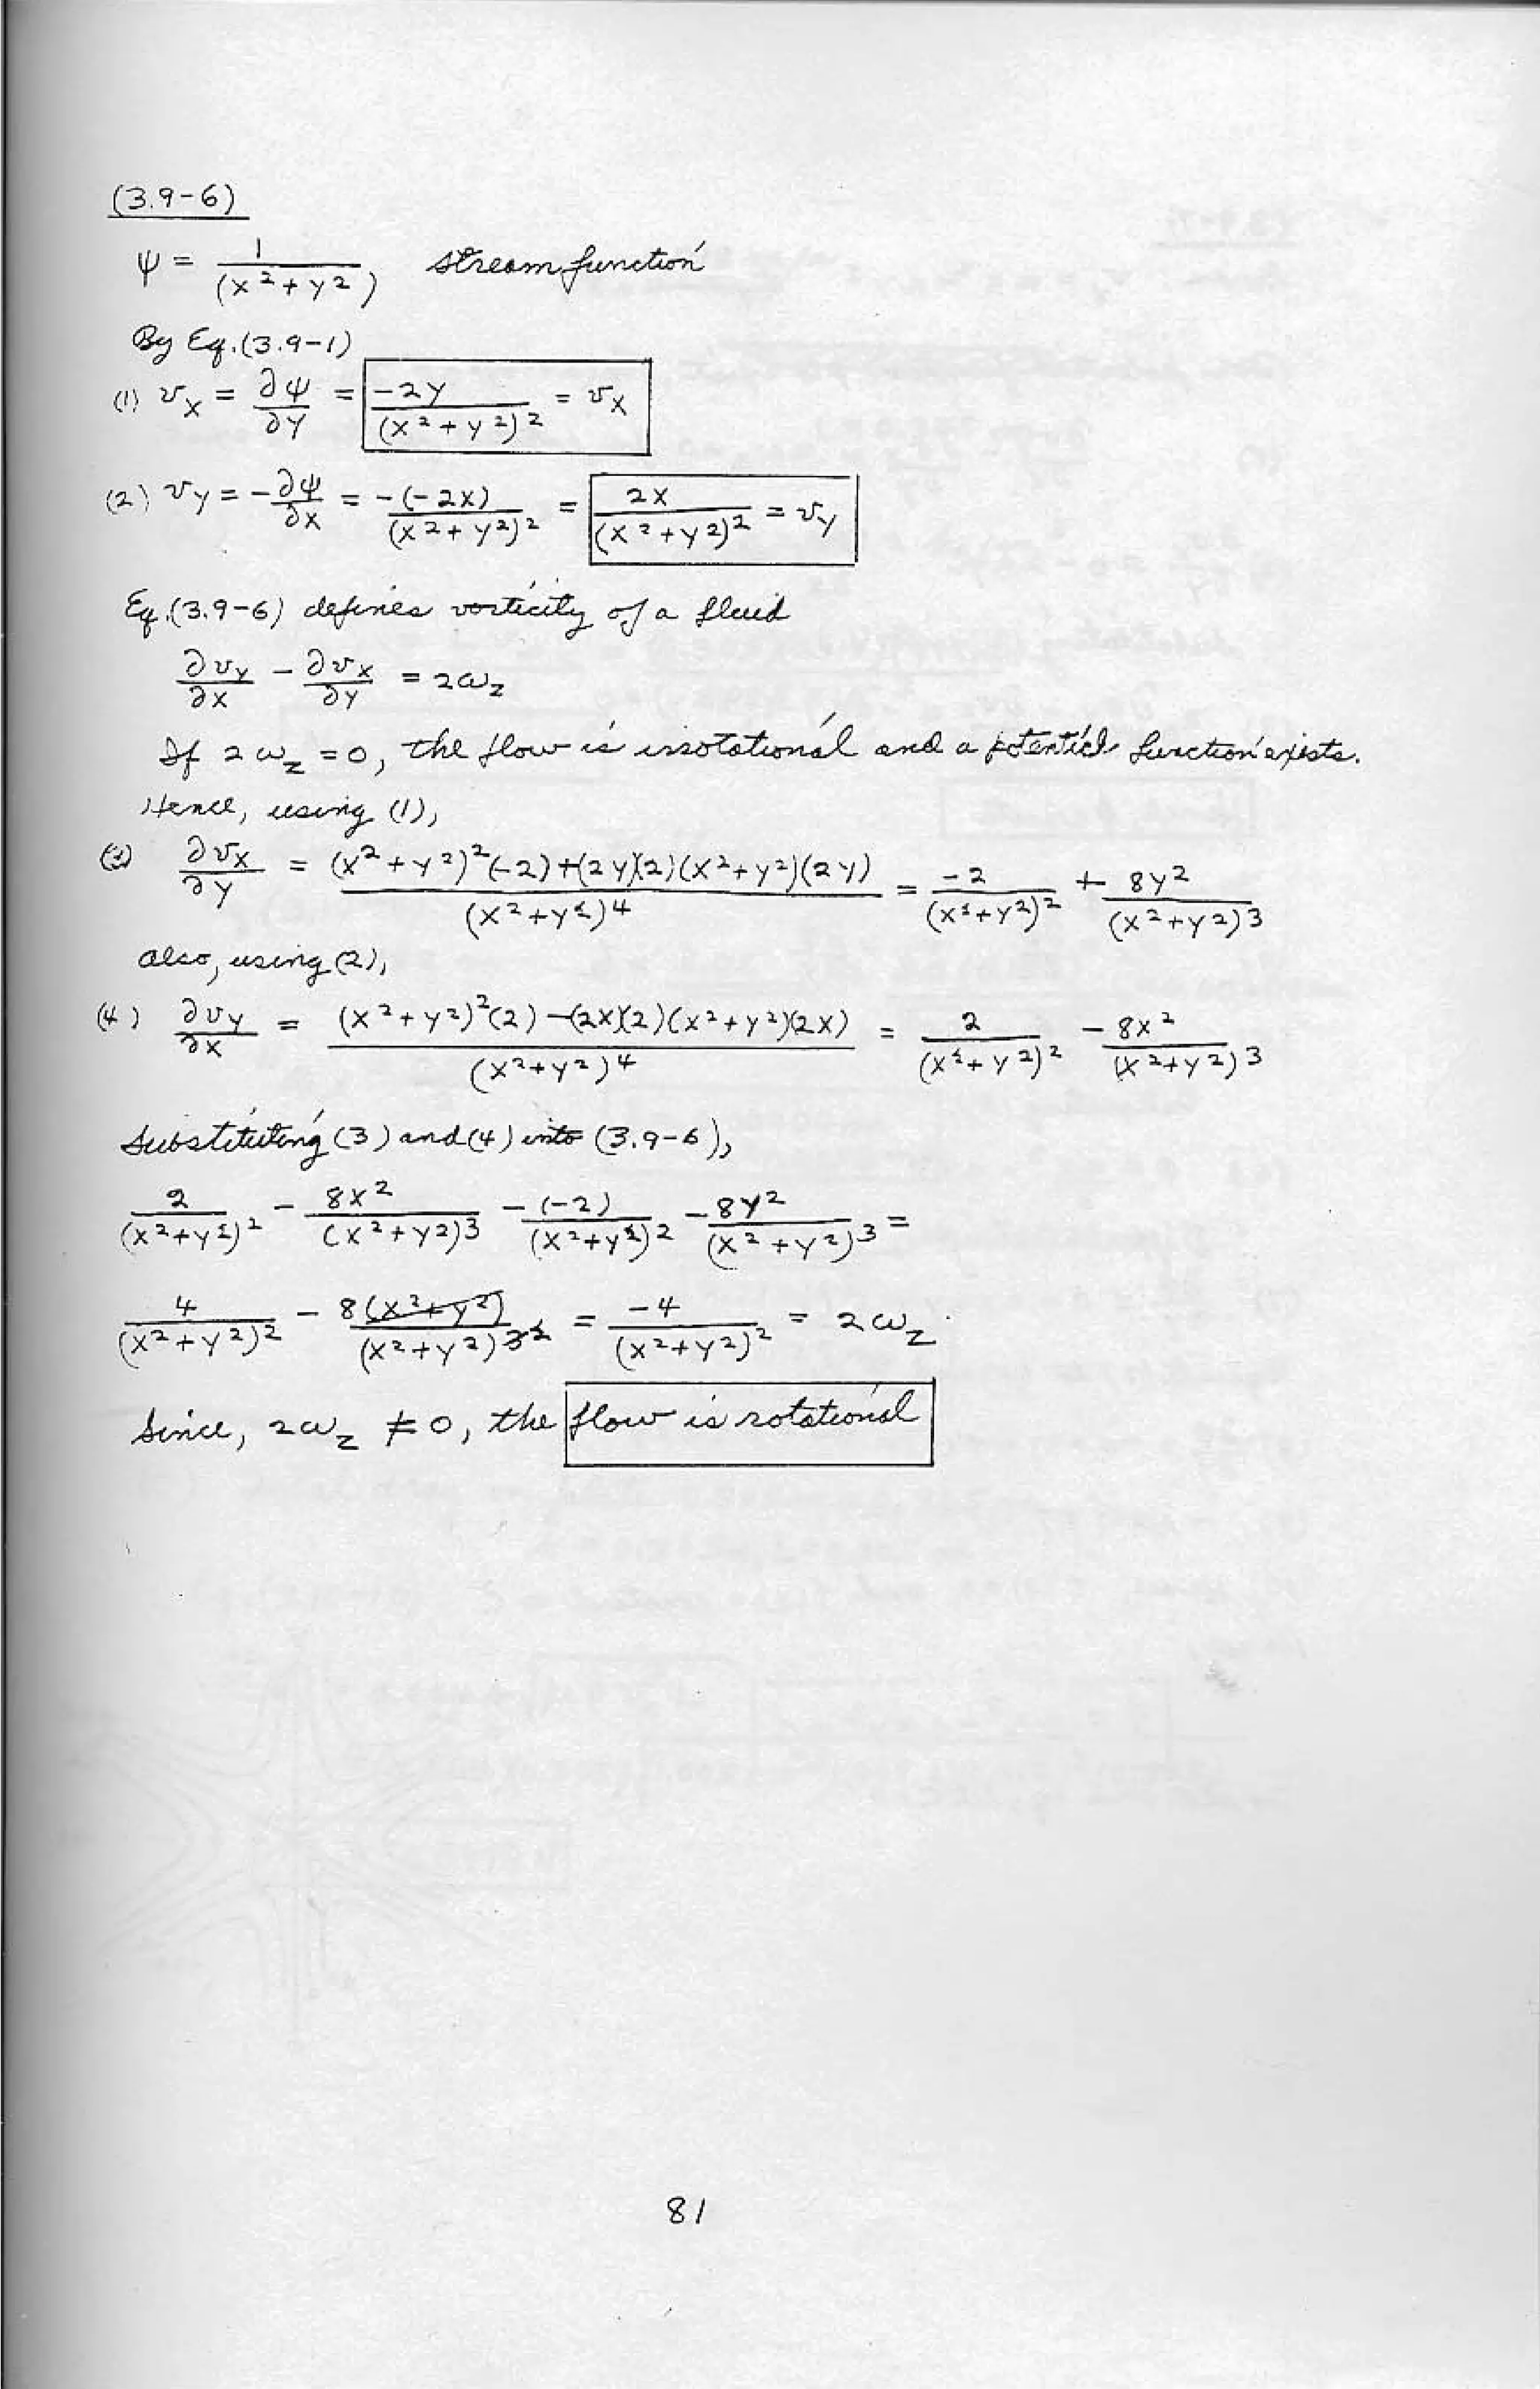 (3.9-6)
ψ = 1/(x²+y²) stream function
By Eq.(3.9-1)
(1) vx = ∂ψ/∂y = -2y/(x²+y²)² = vx
(2) vy = -∂ψ/∂x = -(-2x)/(x²+y²)² = 2x/(x²+y²)² = vy
Eq.(3.9-6) defines vorticity of a fluid
∂vy/∂x - ∂vx/∂y = 2ωz
If 2ωz = 0, the flow is irrotational and a potential function exists.
Hence, using (1),
(3) ∂vx/∂y = ((x²+y²)²(-2)+(2y)(2)(x²+y²)(2y))/(x²+y²)⁴ = -2/(x²+y²)² + 8y²/(x²+y²)³
Also, using (2),
(4) ∂vy/∂x = ((x²+y²)²(2)-(2x)(2)(x²+y²)(2x))/(x²+y²)⁴ = 2/(x²+y²)² - 8x²/(x²+y²)³
Substituting (3) and (4) into (3.9-6),
2/(x²+y²)² - 8x²/(x²+y²)³ - (-2)/(x²+y²)² - 8y²/(x²+y²)³ =
4/(x²+y²)² - 8(x²+y²)/(x²+y²)³² = -4/(x²+y²)² = 2ωz.
Since, 2ωz ≠ 0, the flow is rotational
81